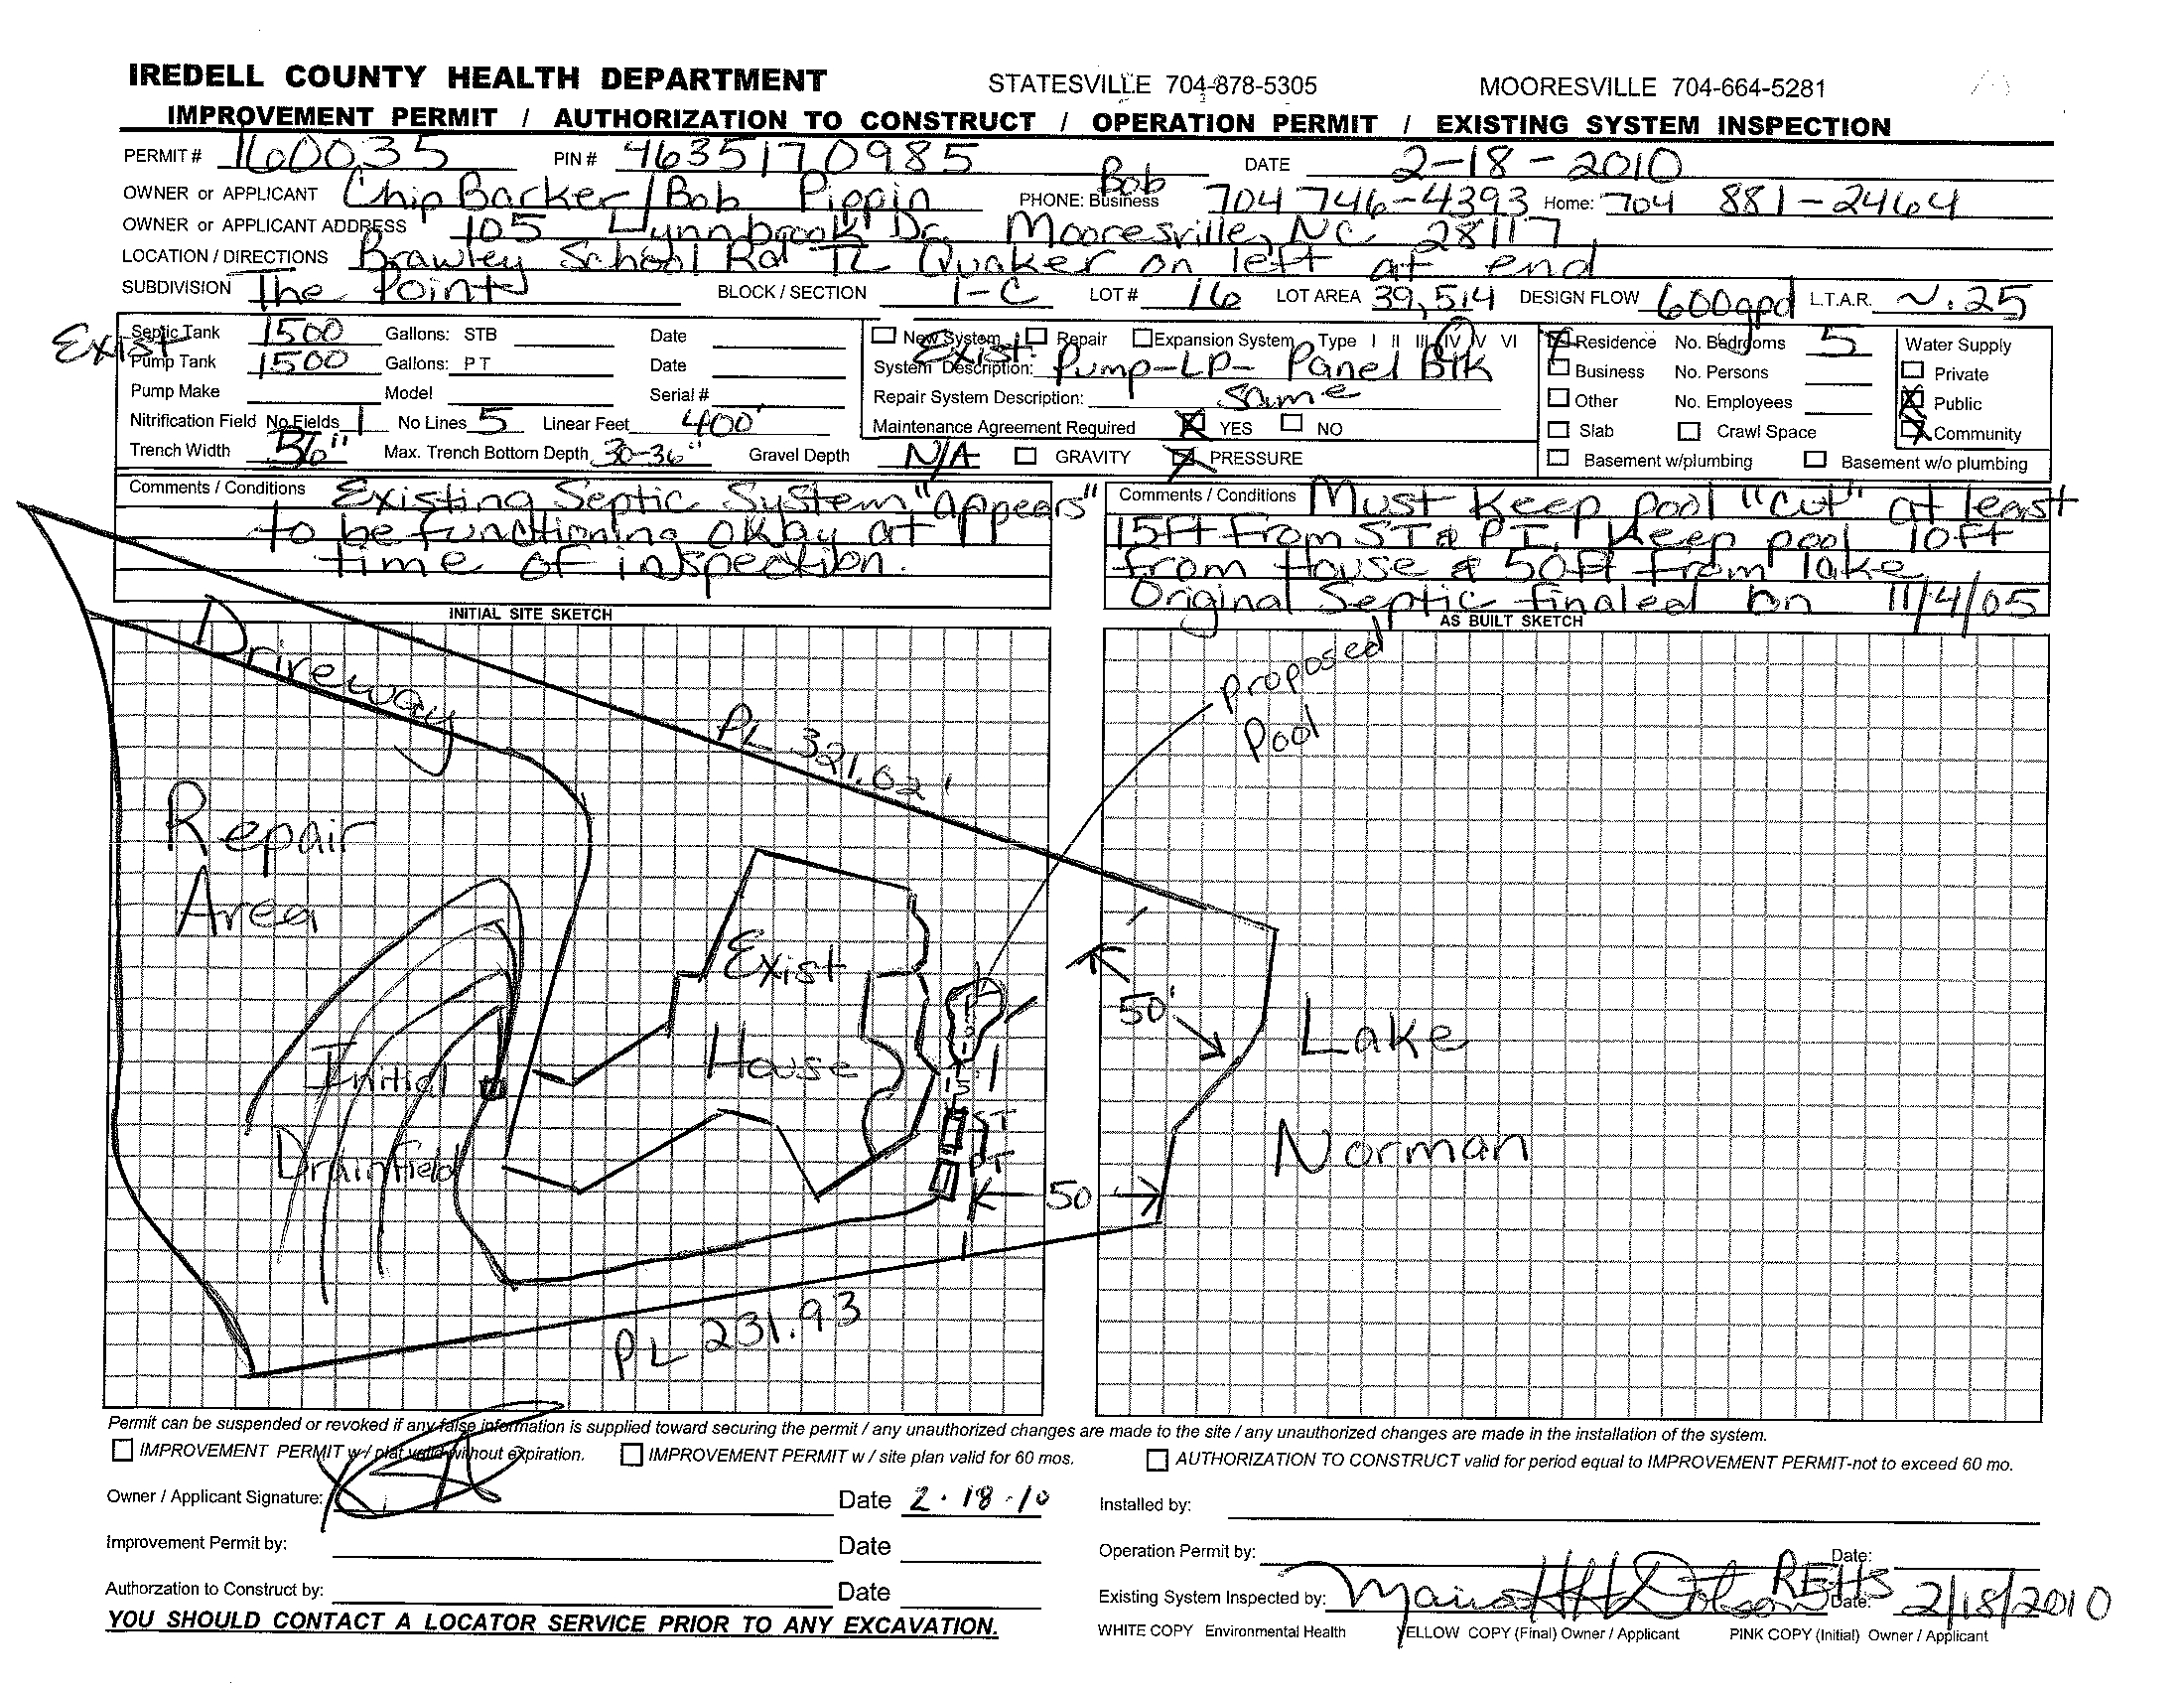 IREDELL COUNTY HEALTH DEPARTMENT STATESVILLE 704-878-5305 MOORESVILLE 704-664-5281
IMPROVEMENT PERMIT / AUTHORIZATION TO CONSTRUCT / OPERATION PERMIT / EXISTING SYSTEM INSPECTION
PERMIT # 160035 PIN # 4635170985 DATE 2-18-2010
OWNER or APPLICANT Chip Barker/Bob Pippin PHONE: Business Bob 704 746-4393 Home: 704 881-2464
OWNER or APPLICANT ADDRESS 105 Lynnbrook Dr. Mooresville, NC 28117
LOCATION / DIRECTIONS Brawley School Rd TL Quaker on left at end
SUBDIVISION The Point BLOCK / SECTION 1-C LOT # 16 LOT AREA 39,514 DESIGN FLOW 600gpd L.T.A.R. ~.25
Exist
Septic Tank 1500 Gallons: STB Date
Pump Tank 1500 Gallons: PT Date
Pump Make Model Serial #
Nitrification Field No Fields 1 No Lines 5 Linear Feet 400'
Trench Width 36" Max. Trench Bottom Depth 30-36" Gravel Depth N/A GRAVITY PRESSURE
New System Repair Expansion System Type I II III IV V VI
System Description: Exist: Pump-LP- Panel Blk
Repair System Description: Same
Maintenance Agreement Required YES NO
Residence No. Bedrooms 5 Water Supply
Business No. Persons Private
Other No. Employees Public
Slab Crawl Space Community
Basement w/plumbing Basement w/o plumbing
Comments / Conditions Existing Septic System "appears"
to be functioning okay at
time of inspection.
Comments / Conditions Must keep pool "cut" at least
15ft from ST & PT. Keep pool 10ft
from House & 50ft from lake
Original Septic finaled on 11/4/05
INITIAL SITE SKETCH
AS BUILT SKETCH
Driveway
Proposed
Pool
PL 321.02'
Repair
Area
Exist
House
Initial
Drainfield
15'
ST
PT
50'
50
Lake
Norman
PL 231.93
Permit can be suspended or revoked if any false information is supplied toward securing the permit / any unauthorized changes are made to the site / any unauthorized changes are made in the installation of the system.
IMPROVEMENT PERMIT w / plat valid without expiration. IMPROVEMENT PERMIT w / site plan valid for 60 mos. AUTHORIZATION TO CONSTRUCT valid for period equal to IMPROVEMENT PERMIT-not to exceed 60 mo.
Owner / Applicant Signature: Date 2.18.10 Installed by:
Improvement Permit by: Date Operation Permit by: Date:
Authorzation to Construct by: Date Existing System Inspected by: REHS Date: 2/18/2010
YOU SHOULD CONTACT A LOCATOR SERVICE PRIOR TO ANY EXCAVATION.
WHITE COPY Environmental Health YELLOW COPY (Final) Owner / Applicant PINK COPY (Initial) Owner / Applicant